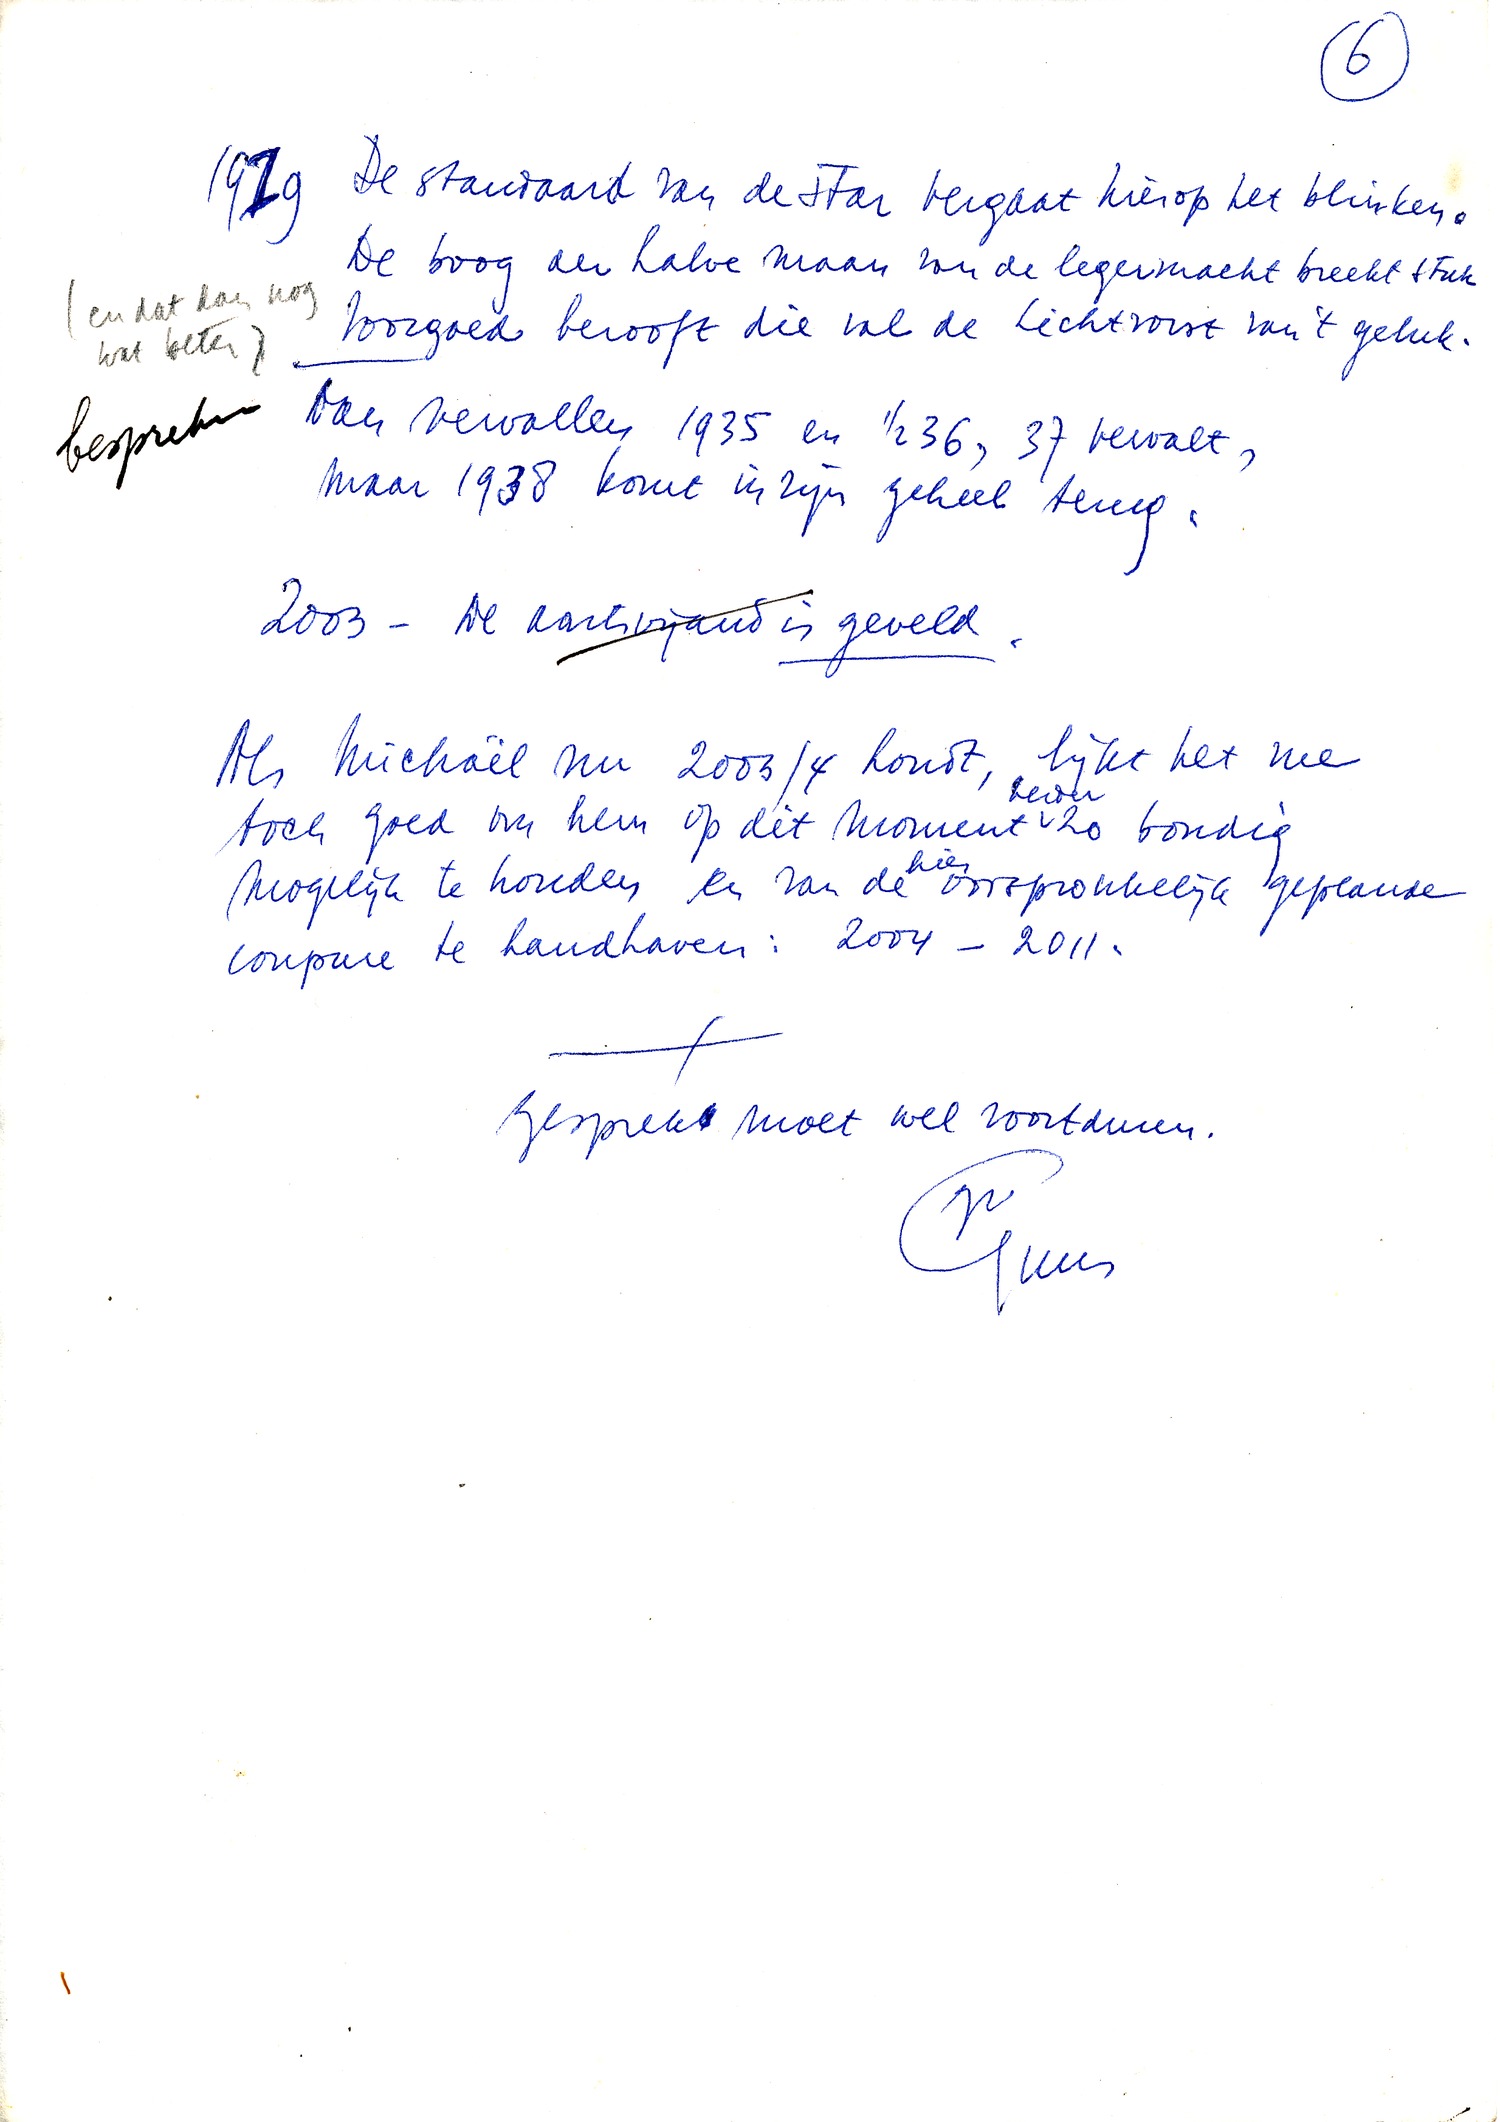 6
1929 De standaard van de star vergaat hierop het blinken.
De boog der halve maan van de legermacht breekt stuk
(en dat dan nog
wat beter)
Voorgoed berooft die val de Lichtvorst van 't geluk.
bespreken
Dan vervallen 1935 en ½36, 37 vervalt,
maar 1938 komt in zijn geheel terug.
2003 - De aartsvijand is geveld.
Als Michaël nu 2003/4 houdt, lijkt het me
toch goed om hem op dit moment zo bondig
mogelijk te houden en van de hier oorspronkelijk geplande
coupure te handhaven: 2004 - 2011.
Gesprek moet wel voortduren.
Guus